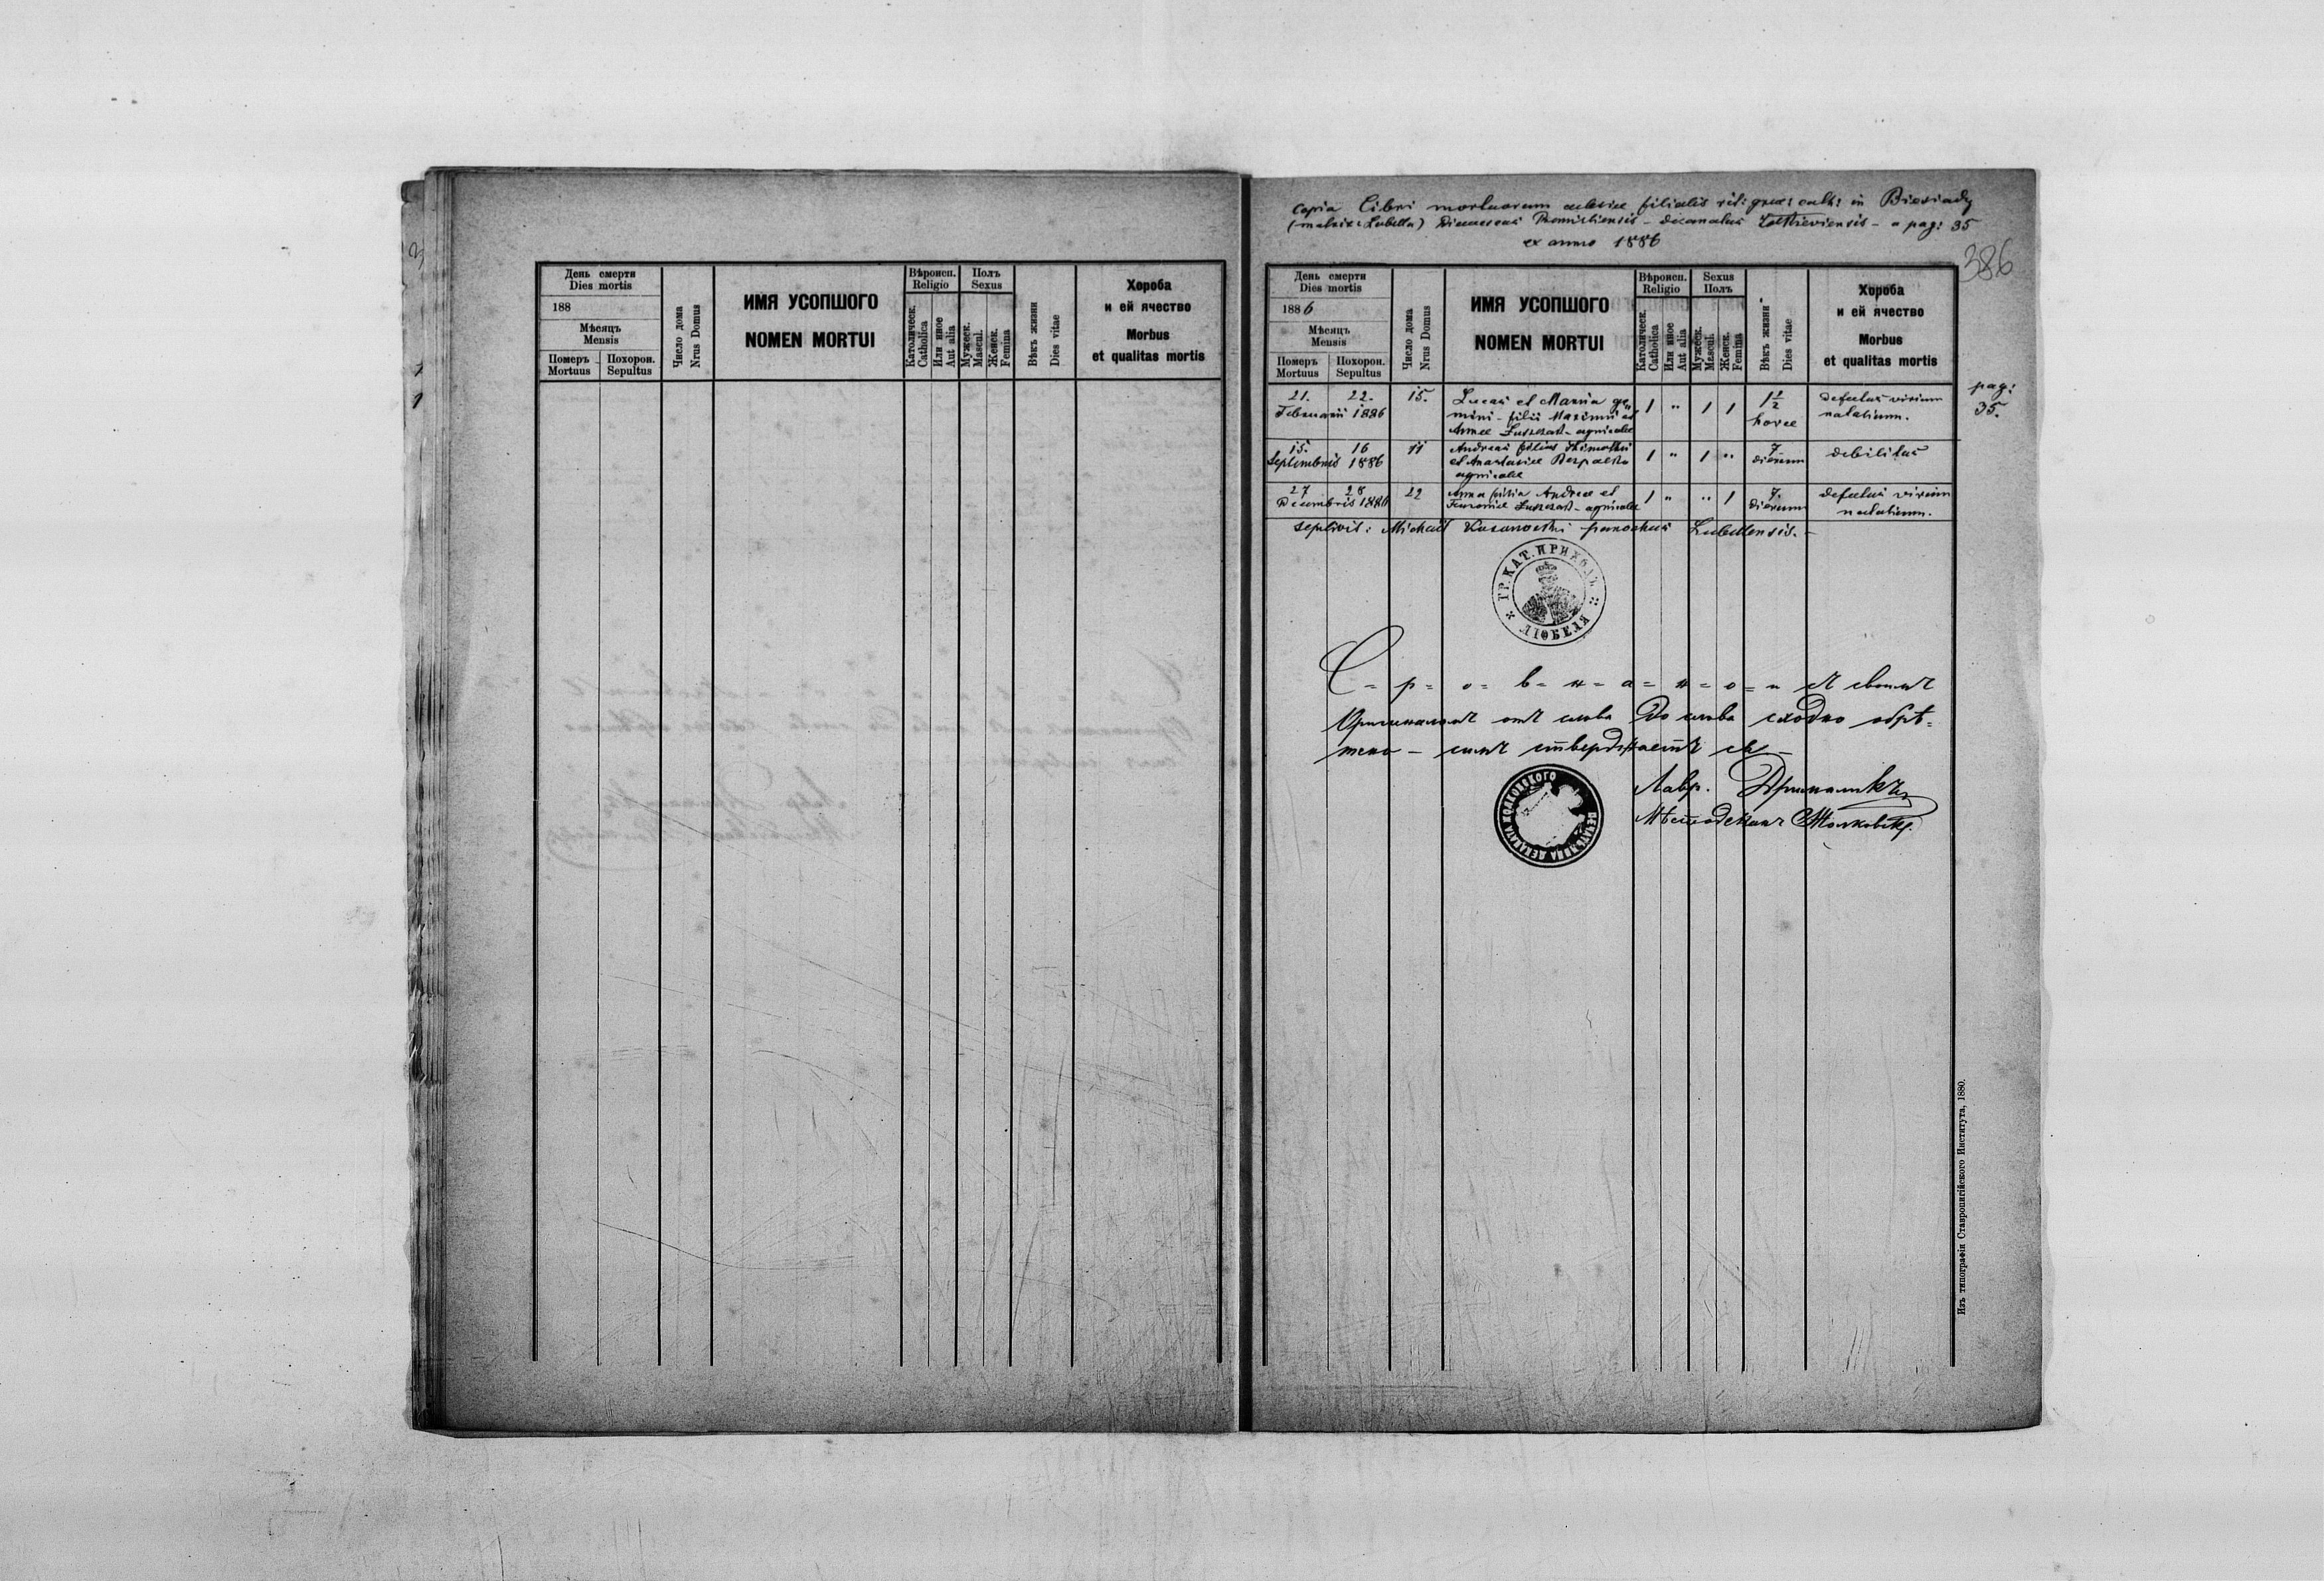 День смерти
Dies mortis
188
Мѣсяцъ
Mensis
Померъ
Mortuus
Похорон.
Sepultus
Число дома
Nrus Domus
ИМЯ УСОПШОГО
NOMEN MORTUI
Вѣроисп.
Religio
Католическ.
Catholica
Или иное
Aut alia
Полъ
Sexus
Мужеск.
Mascul.
Женск.
Femina
Вѣкъ жизни
Dies vitae
Хороба
и ей ячество
Morbus
et qualitas mortis
Copia Libri mortuorum eclesiae filialis rit: graec: cath: in Biesiady
(matrix: Lubella) Dioeceseos Premisliensis - decanatus - a pag: 35
ex anno 1886
386
День смерти
Dies mortis
1886
Мѣсяцъ
Mensis
Померъ
Mortuus
Похорон.
Sepultus
Число дома
Nrus Domus
ИМЯ УСОПШОГО
NOMEN MORTUI
Вѣроисп.
Religio
Католическ.
Catholica
Или иное
Aut alia
Sexus
Полъ
Мужеск.
Mascul.
Женск.
Femina
Вѣкъ жизни
Dies vitae
Хороба
и ей ячество
Morbus
et qualitas mortis
pag:
35.
21. 22. 15. Lucas et Maria ge„ 1 " 1 1 1½ defectus virium
Februarii 1886 mini - filii Maximi et horae natalium.
Annae - agricolae
15. 16 11 Andreas filius Thimothei 1 " 1 " 7 debilitas
Septembris 1886 et Anastasiae dierum
agricolae
27 28 22 Anna filia Andreae et 1 " " 1 7. defectus virium
Decembris 1886 - agricolae dierum natalium.
sepelivit: Michael parochus Lubellensis. -
ГР. КАТ. ПРИХОДЪ
ЛЮБЕЛЯ
С = р = о = в = н = а = н = о = и съ своимъ
Оригиналомъ отъ слова до слова сходно обрѣ=
тено - симъ стверджаетъ ся -
Лавр.
Мѣстодеканъ Жолковскій.
Изъ типографіи Ставропигійского Института, 1880.